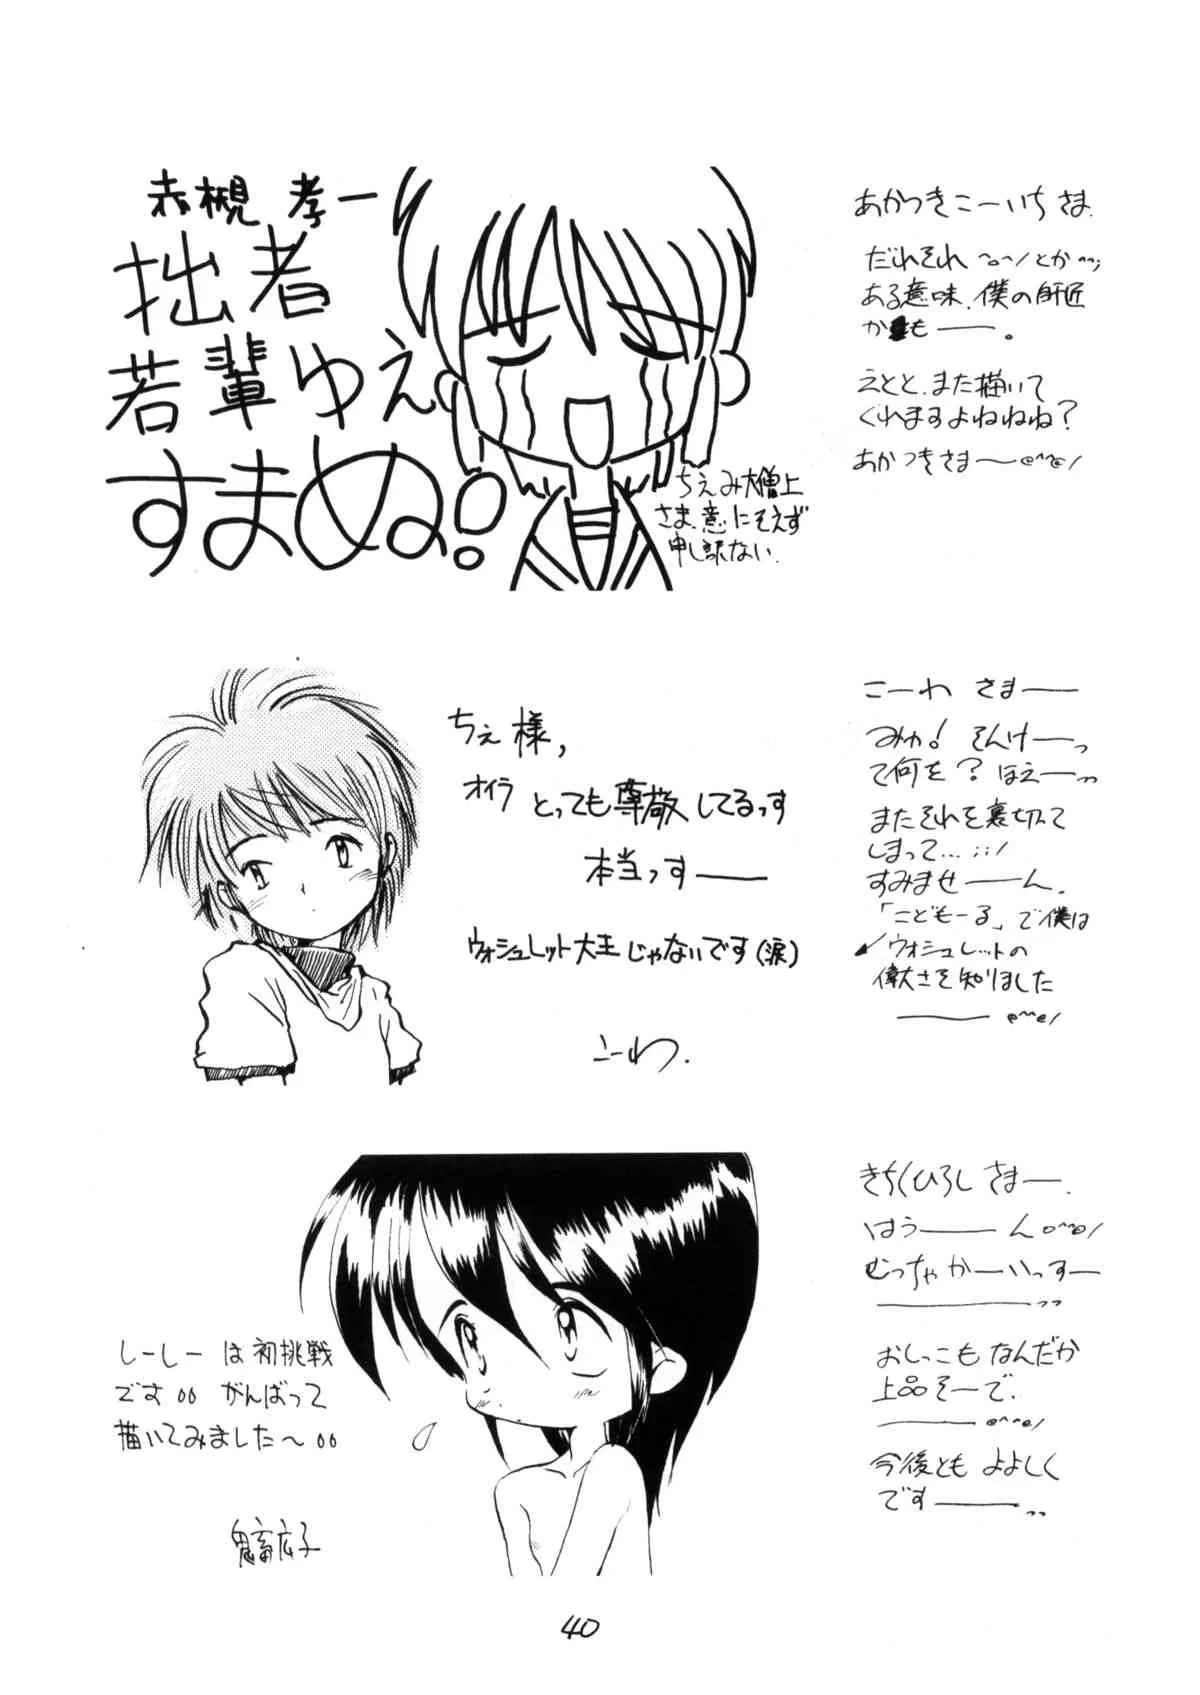 赤槻 孝一
拙者
若輩ゆえ
すまぬ!
ちえみ大僧上
さま、意にそえず
申し訳ない.
あかつきこーいちさま.
だれそれ ^o^/とか^^;
ある意味、僕の師匠
かも——。
えとと、また描いて
くれますよねねね?
あかつきさま〜@^^@/
ちぇ様,
オイラ とっても尊敬してるっす
本当っす——
ウォシュレット大王じゃないです(涙)
こーわ.
こーわ さま——
みゅ! そんけーっ
て何を? ほえーっっ
またそれを裏切って
しまって...;;/
すみませ——ん.
「こどもーる」で僕は
ウォシュレットの
偉大さを知りました
—— @^^@/
しーしー は初挑戦
です。。 がんばって
描いてみました〜。。
鬼畜広子
きちくひろし さまー.
はう——ん@^^@/
むっちゃかーいっすー
——っっ
おしっこも なんだか
上品そーで.
—— @^^@/
今後とも よよしく
です——っっ
40